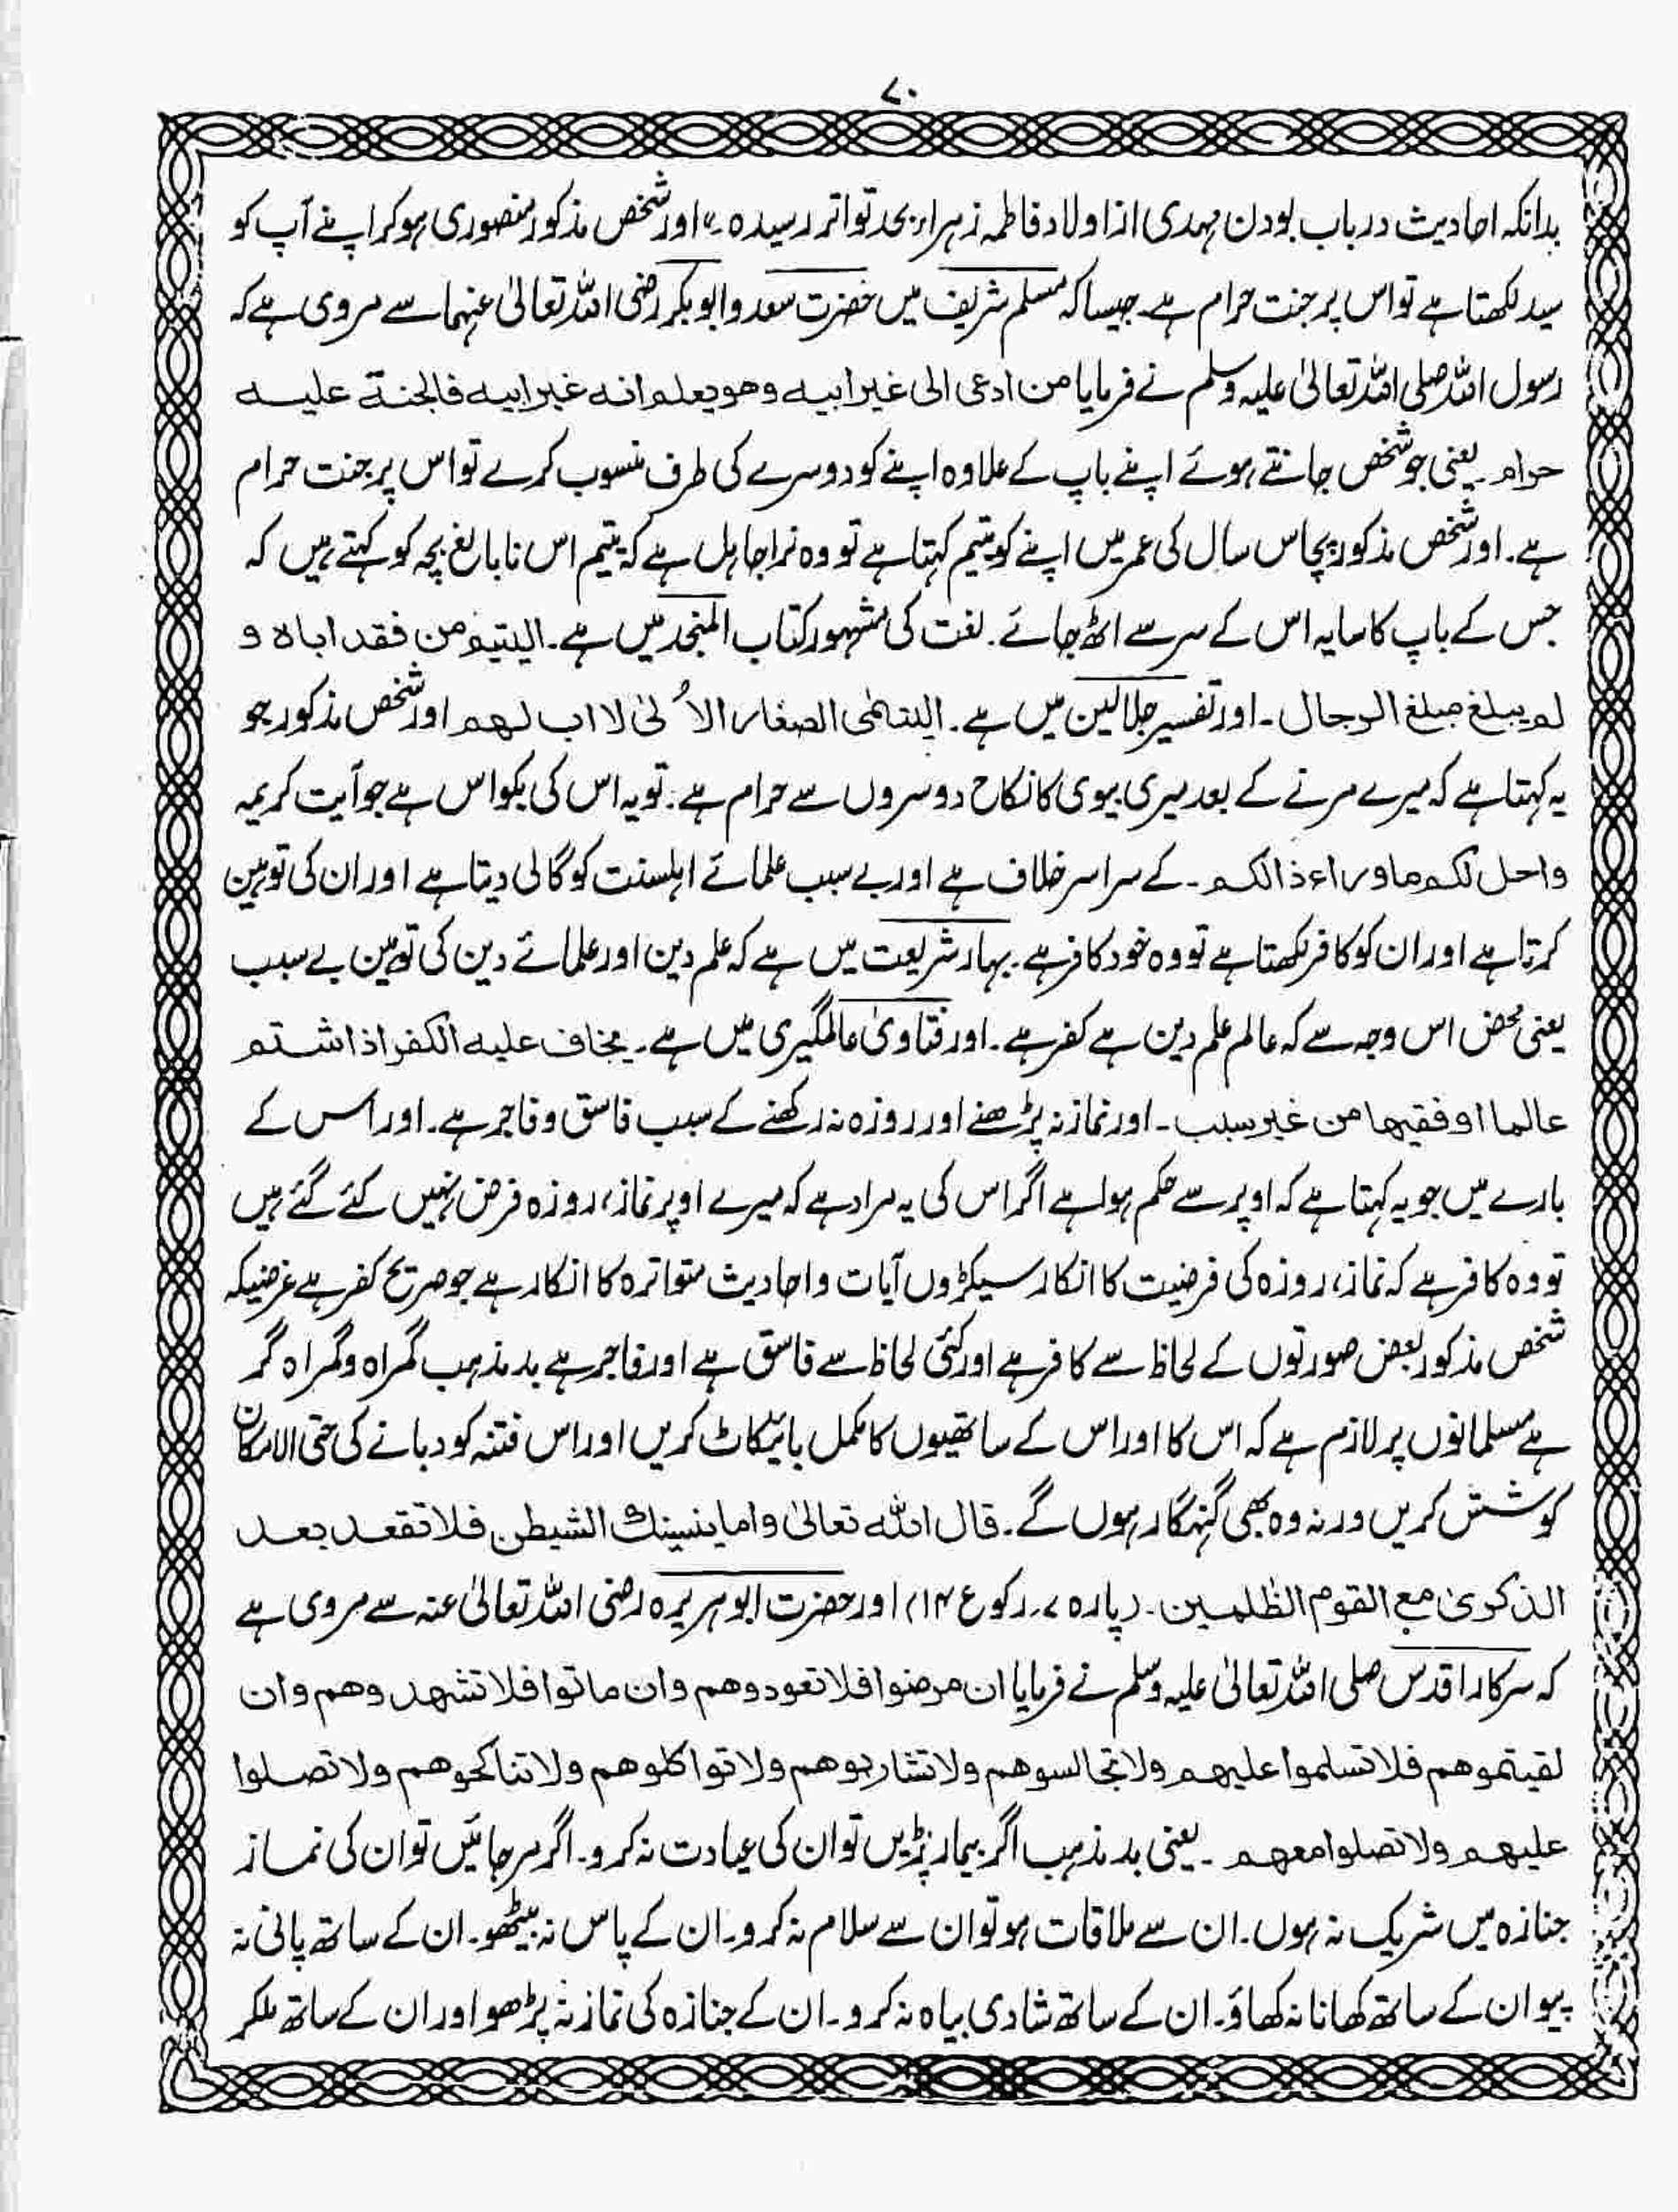 ۷۰
بدانکہ احادیث درباب بودن مہدی از اولاد فاطمہ زہراء بحد تواتر رسیدہ۔" اور شخص مذکور منصوری ہوکر اپنے آپ کو
سید لکھتا ہے تو اس پر جنت حرام ہے۔ جیسا کہ مسلم شریف میں حضرت سعد و ابو بکر رضی اللہ تعالیٰ عنہما سے مروی ہے کہ
رسول اللہ صلی اللہ تعالیٰ علیہ وسلم نے فرمایا من ادعی الی غیر ابیہ وھو یعلم انہ غیر ابیہ فالجنۃ علیہ
حرام۔ یعنی جو شخص جانتے ہوئے اپنے باپ کے علاوہ اپنے کو دوسرے کی طرف منسوب کرے تو اس پر جنت حرام
ہے۔ اور شخص مذکور پچاس سال کی عمر میں اپنے کو یتیم کہتا ہے تو وہ نرا جاہل ہے کہ یتیم اس نابالغ بچہ کو کہتے ہیں کہ
جس کے باپ کا سایہ اس کے سر سے اٹھ جائے۔ لغت کی مشہور کتاب المنجد میں ہے۔ الیتیم من فقد اباہ و
لم یبلغ مبلغ الرجال۔ اور تفسیر جلالین میں ہے۔ الیتٰمٰی الصغار الاُلیٰ لا اب لہم اور شخص مذکور جو
یہ کہتا ہے کہ میرے مرنے کے بعد میری بیوی کا نکاح دوسروں سے حرام ہے۔ تو یہ اس کی بکواس ہے جو آیت کریمہ
واحل لکم ماوراء ذالکم۔ کے سراسر خلاف ہے اور بے سبب علمائے اہلسنت کو گالی دیتا ہے اور ان کی توہین
کرتا ہے اور ان کو کافر لکھتا ہے تو وہ خود کافر ہے۔ بہار شریعت میں ہے کہ علم دین اور علمائے دین کی توہین بے سبب
یعنی محض اس وجہ سے کہ عالم علم دین ہے کفر ہے۔ اور فتاویٰ عالمگیری میں ہے۔ یخاف علیہ الکفر اذا شتم
عالما او فقیہا من غیر سبب۔ اور نماز نہ پڑھنے اور روزہ نہ رکھنے کے سبب فاسق و فاجر ہے۔ اور اس کے
بارے میں جو یہ کہتا ہے کہ اوپر سے حکم ہوا ہے اگر اس کی یہ مراد ہے کہ میرے اوپر نماز، روزہ فرض نہیں کئے گئے ہیں
تو وہ کافر ہے کہ نماز، روزہ کی فرضیت کا انکار سیکڑوں آیات واحادیث متواترہ کا انکار ہے جو صریح کفر ہے غرضیکہ
شخص مذکور بعض صورتوں کے لحاظ سے کافر ہے اور کئی لحاظ سے فاسق ہے اور فاجر ہے بدمذہب گمراہ و گمراہ گر
ہے مسلمانوں پر لازم ہے کہ اس کا اور اس کے ساتھیوں کا مکمل بائیکاٹ کریں اور اس فتنہ کو دبانے کی حتی الامکان
کوشش کریں ورنہ وہ بھی گنہگار ہوں گے۔ قال اللہ تعالیٰ واما ینسینک الشیطٰن فلا تقعد بعد
الذکریٰ مع القوم الظٰلمین۔ (پارہ ۷، رکوع ۱۴) اور حضرت ابوہریرہ رضی اللہ تعالیٰ عنہ سے مروی ہے
کہ سرکار اقدس صلی اللہ تعالیٰ علیہ وسلم نے فرمایا ان مرضوا فلا تعودوھم وان ماتوا فلا تشہدوھم وان
لقیتموھم فلا تسلموا علیھم ولا تجالسوھم ولا تشاربوھم ولا تواکلوھم ولا تناکحوھم ولا تصلوا
علیھم ولا تصلوا معھم۔ یعنی بدمذہب اگر بیمار پڑیں تو ان کی عیادت نہ کرو۔ اگر مرجائیں تو ان کی نماز
جنازہ میں شریک نہ ہوں۔ ان سے ملاقات ہو تو ان سے سلام نہ کرو۔ ان کے پاس نہ بیٹھو۔ ان کے ساتھ پانی نہ
پیو ان کے ساتھ کھانا نہ کھاؤ۔ ان کے ساتھ شادی بیاہ نہ کرو۔ ان کے جنازہ کی نماز نہ پڑھو اور ان کے ساتھ ملکر